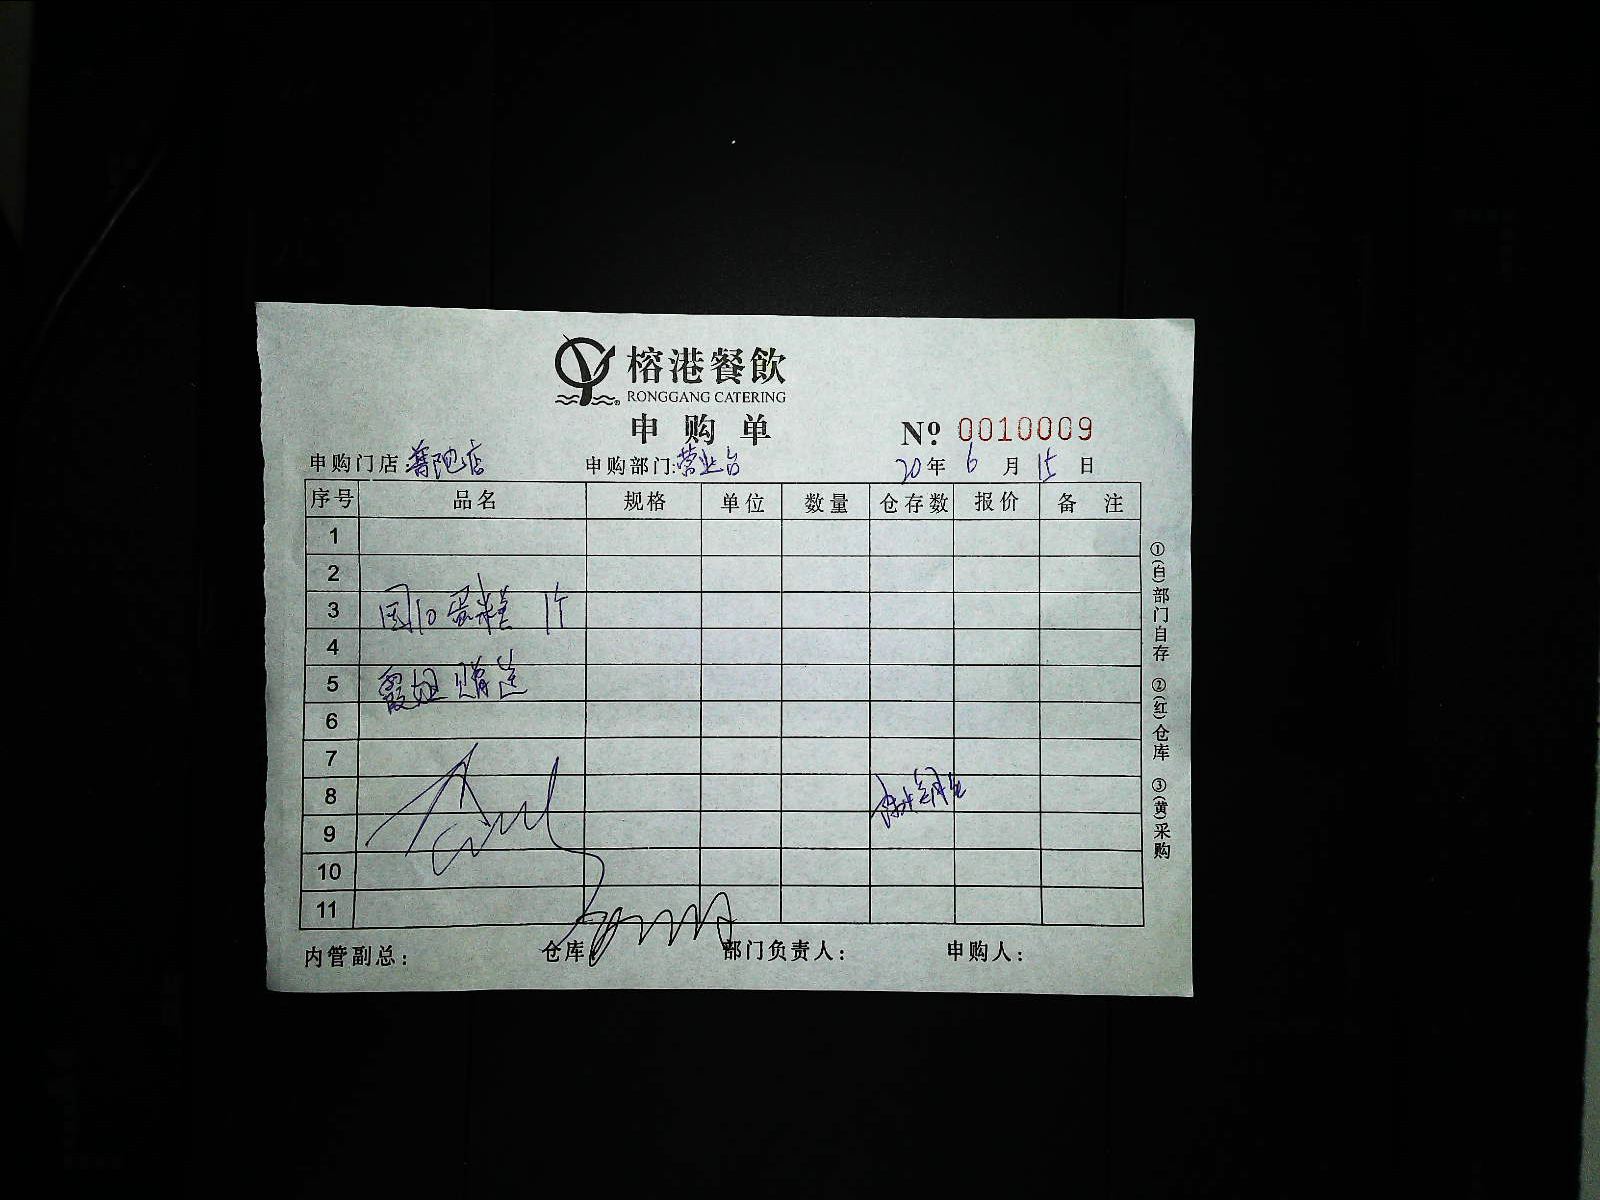 榕港餐飲
RONGGANG CATERING
申购单
№: 0010009
申购门店: 店 申购部门:营业台 20年 6月 15日
序号 品名 规格 单位 数量 仓存数 报价 备注
1
2
3 蛋糕 1个
4
5 霞姐 赠送
6
7
8
9
10
11
内管副总: 仓库 部门负责人: 申购人:
①(白)部门自存 ②(红)仓库 ③(黄)采购